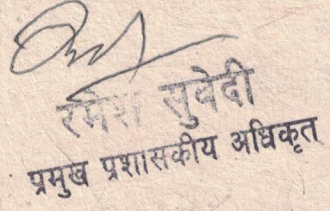 रमेश सुवेदी
प्रमुख प्रशासकीय अधिकृत्